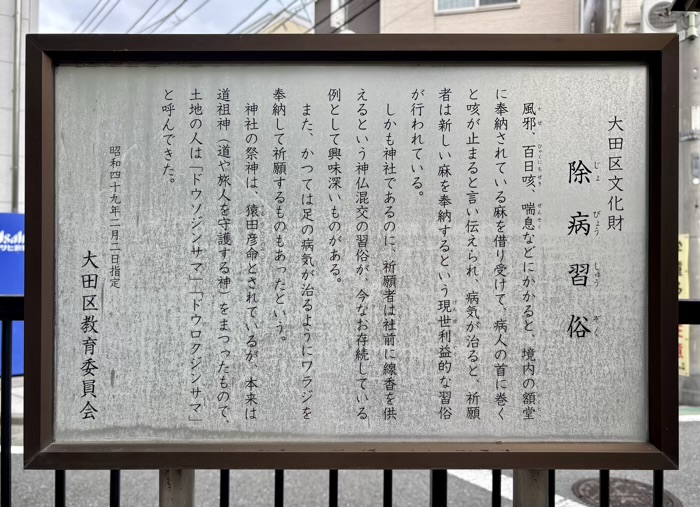 大田区文化財
除病習俗
じょびょうしゅうぞく
風邪、百日咳、喘息などにかかると、境内の額堂
に奉納されている麻を借り受けて、病人の首に巻く
と咳が止まると言い伝えられ、病気が治ると、祈願
者は新しい麻を奉納するという現世利益的な習俗
が行われている。
しかも神社であるのに、祈願者は社前に線香を供
えるという神仏混交の習俗が、今なお存続している
例として興味深いものがある。
また、かつては足の病気が治るようにワラジを
奉納して祈願するものもあったという。
神社の祭神は、猿田彦命とされているが、本来は
道祖神（道や旅人を守護する神）をまつったもので、
土地の人は「ドウソジンサマ」「ドウロクジンサマ」
と呼んできた。
昭和四十九年二月二日指定
大田区教育委員会
Asahi